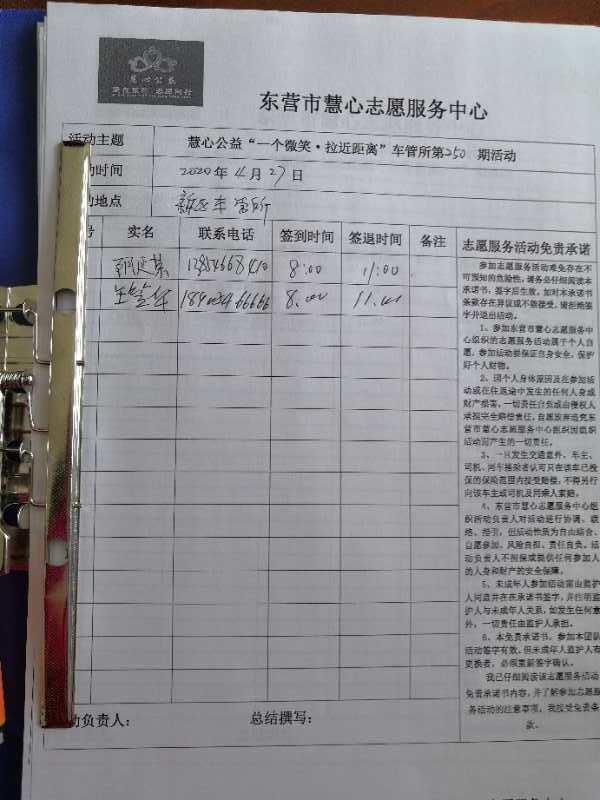 慧心公益
东营市慧心志愿服务中心
活动主题 慧心公益“一个微笑·拉近距离”车管所第250期活动
动时间 2020年4月27日
动地点 新区车管所
号 实名 联系电话 签到时间 签退时间 备注 志愿服务活动免责承诺
8:00 11:00
8:00 11:00
参加志愿服务活动难免存在不
可预知的危险性，请务必仔细阅读本
承诺书，签字后生效。如对本承诺书
条款存在异议或不能接受，请拒绝签
字并退出活动。
1、参加东营市慧心志愿服务中
心组织的志愿服务活动属于个人自
愿，参加活动要保证自身安全，保护
好个人财物。
2、因个人身体原因及在参加活
动或在往返途中发生的任何人身或
财产损害，一切责任自负或由侵权人
承担完全赔偿责任，自愿放弃追究东
营市慧心志愿服务中心组织因组织
活动而产生的一切责任。
3、一旦发生交通意外，车主、
司机、同车搭乘者认可只在该车已投
保的保险范围内接受赔偿，不得另行
向该车主或司机及同乘人索赔。
4、东营市慧心志愿服务中心组
织活动负责人对活动进行协调、联
络、指引，但活动性质为自由结合、
自愿参加、风险自担、责任自负。活
动负责人不担保或提供任何参加人
的人身和财产的安全保障。
5、未成年人参加活动需由监护
人同意并在在承诺书签字，并注明监
护人与未成年人关系，如发生任何意
外，一切责任由监护人承担。
6、本免责承诺书，参加本团队
活动签字有效，但未成年人监护人有
更换者，必须重新签字确认。
我已仔细阅读该志愿服务活动
免责承诺书内容，并了解参加志愿服
务活动的注意事项，我接受免责条
款。
动负责人： 总结撰写：